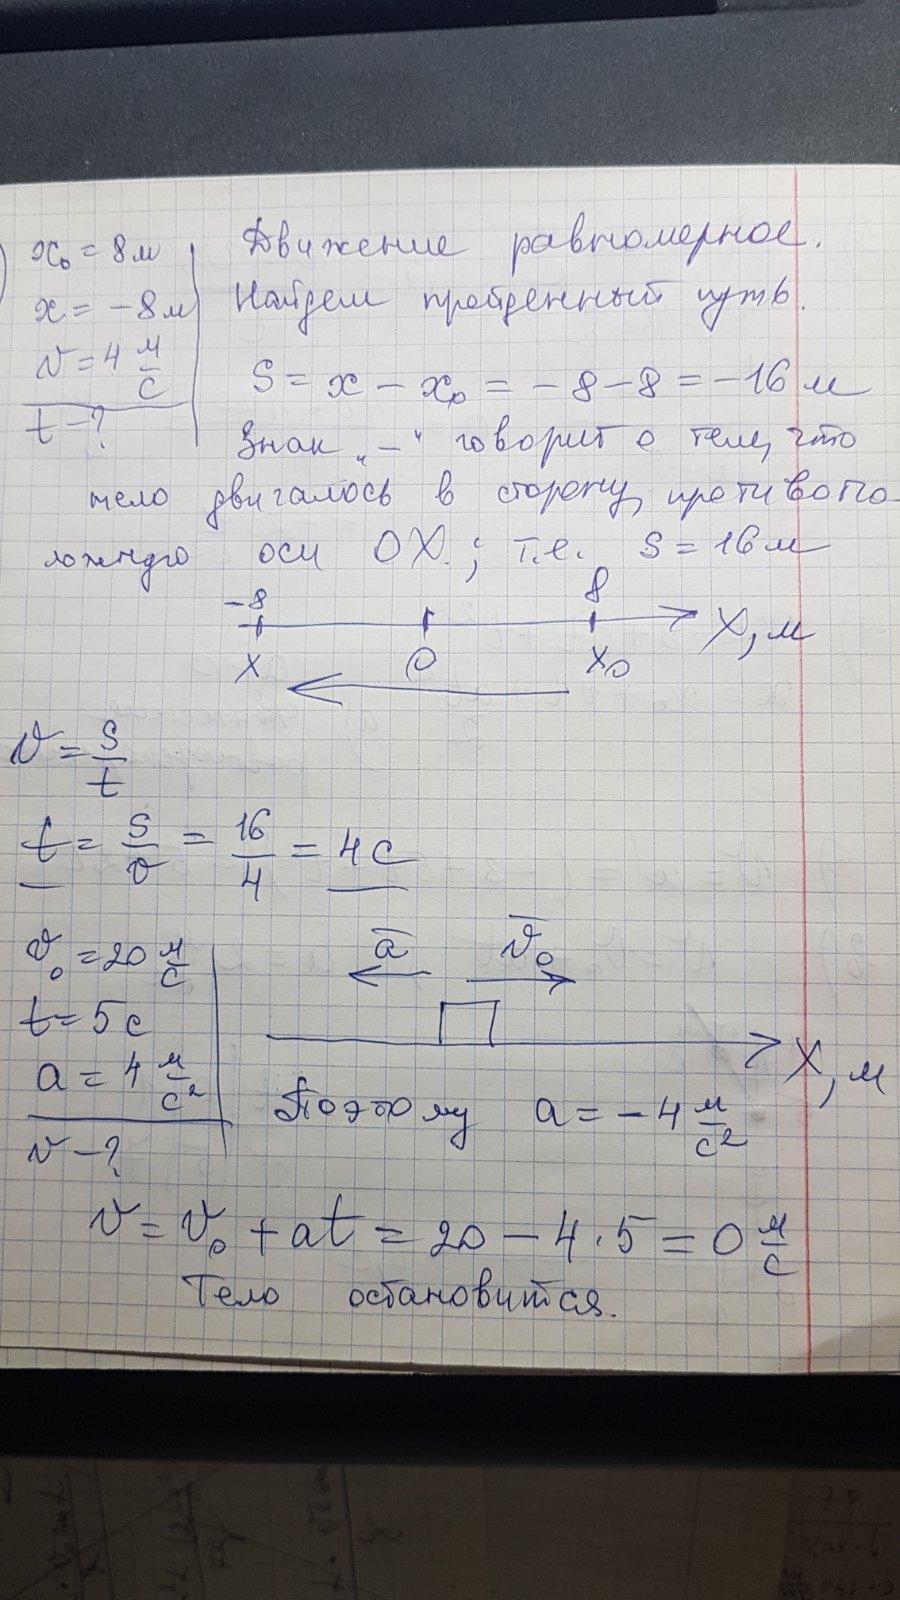 x₀ = 8м
x = -8м
v = 4 м/с
t - ?
Движение равномерное.
Найдем пройденный путь.
S = x - x₀ = -8-8 = -16 м
Знак „-“ говорит о тем, что
тело двигалось в сторону, противопо-
ложную оси OX.; т.е. S = 16 м
-8 8
X 0 X₀ X, м
v = s/t
t = s/v = 16/4 = 4 с
v₀ = 20 м/с
t = 5 с
a = 4 м/с²
v - ?
a v₀
X, м
Поэтому a = -4 м/с²
v = v₀ + at = 20 - 4·5 = 0 м/с
Тело остановится.